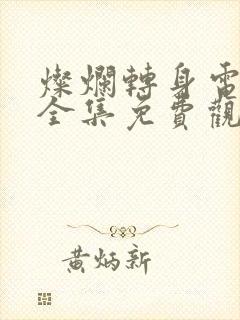 燦爛轉身電
全集免費觀
黃炳新